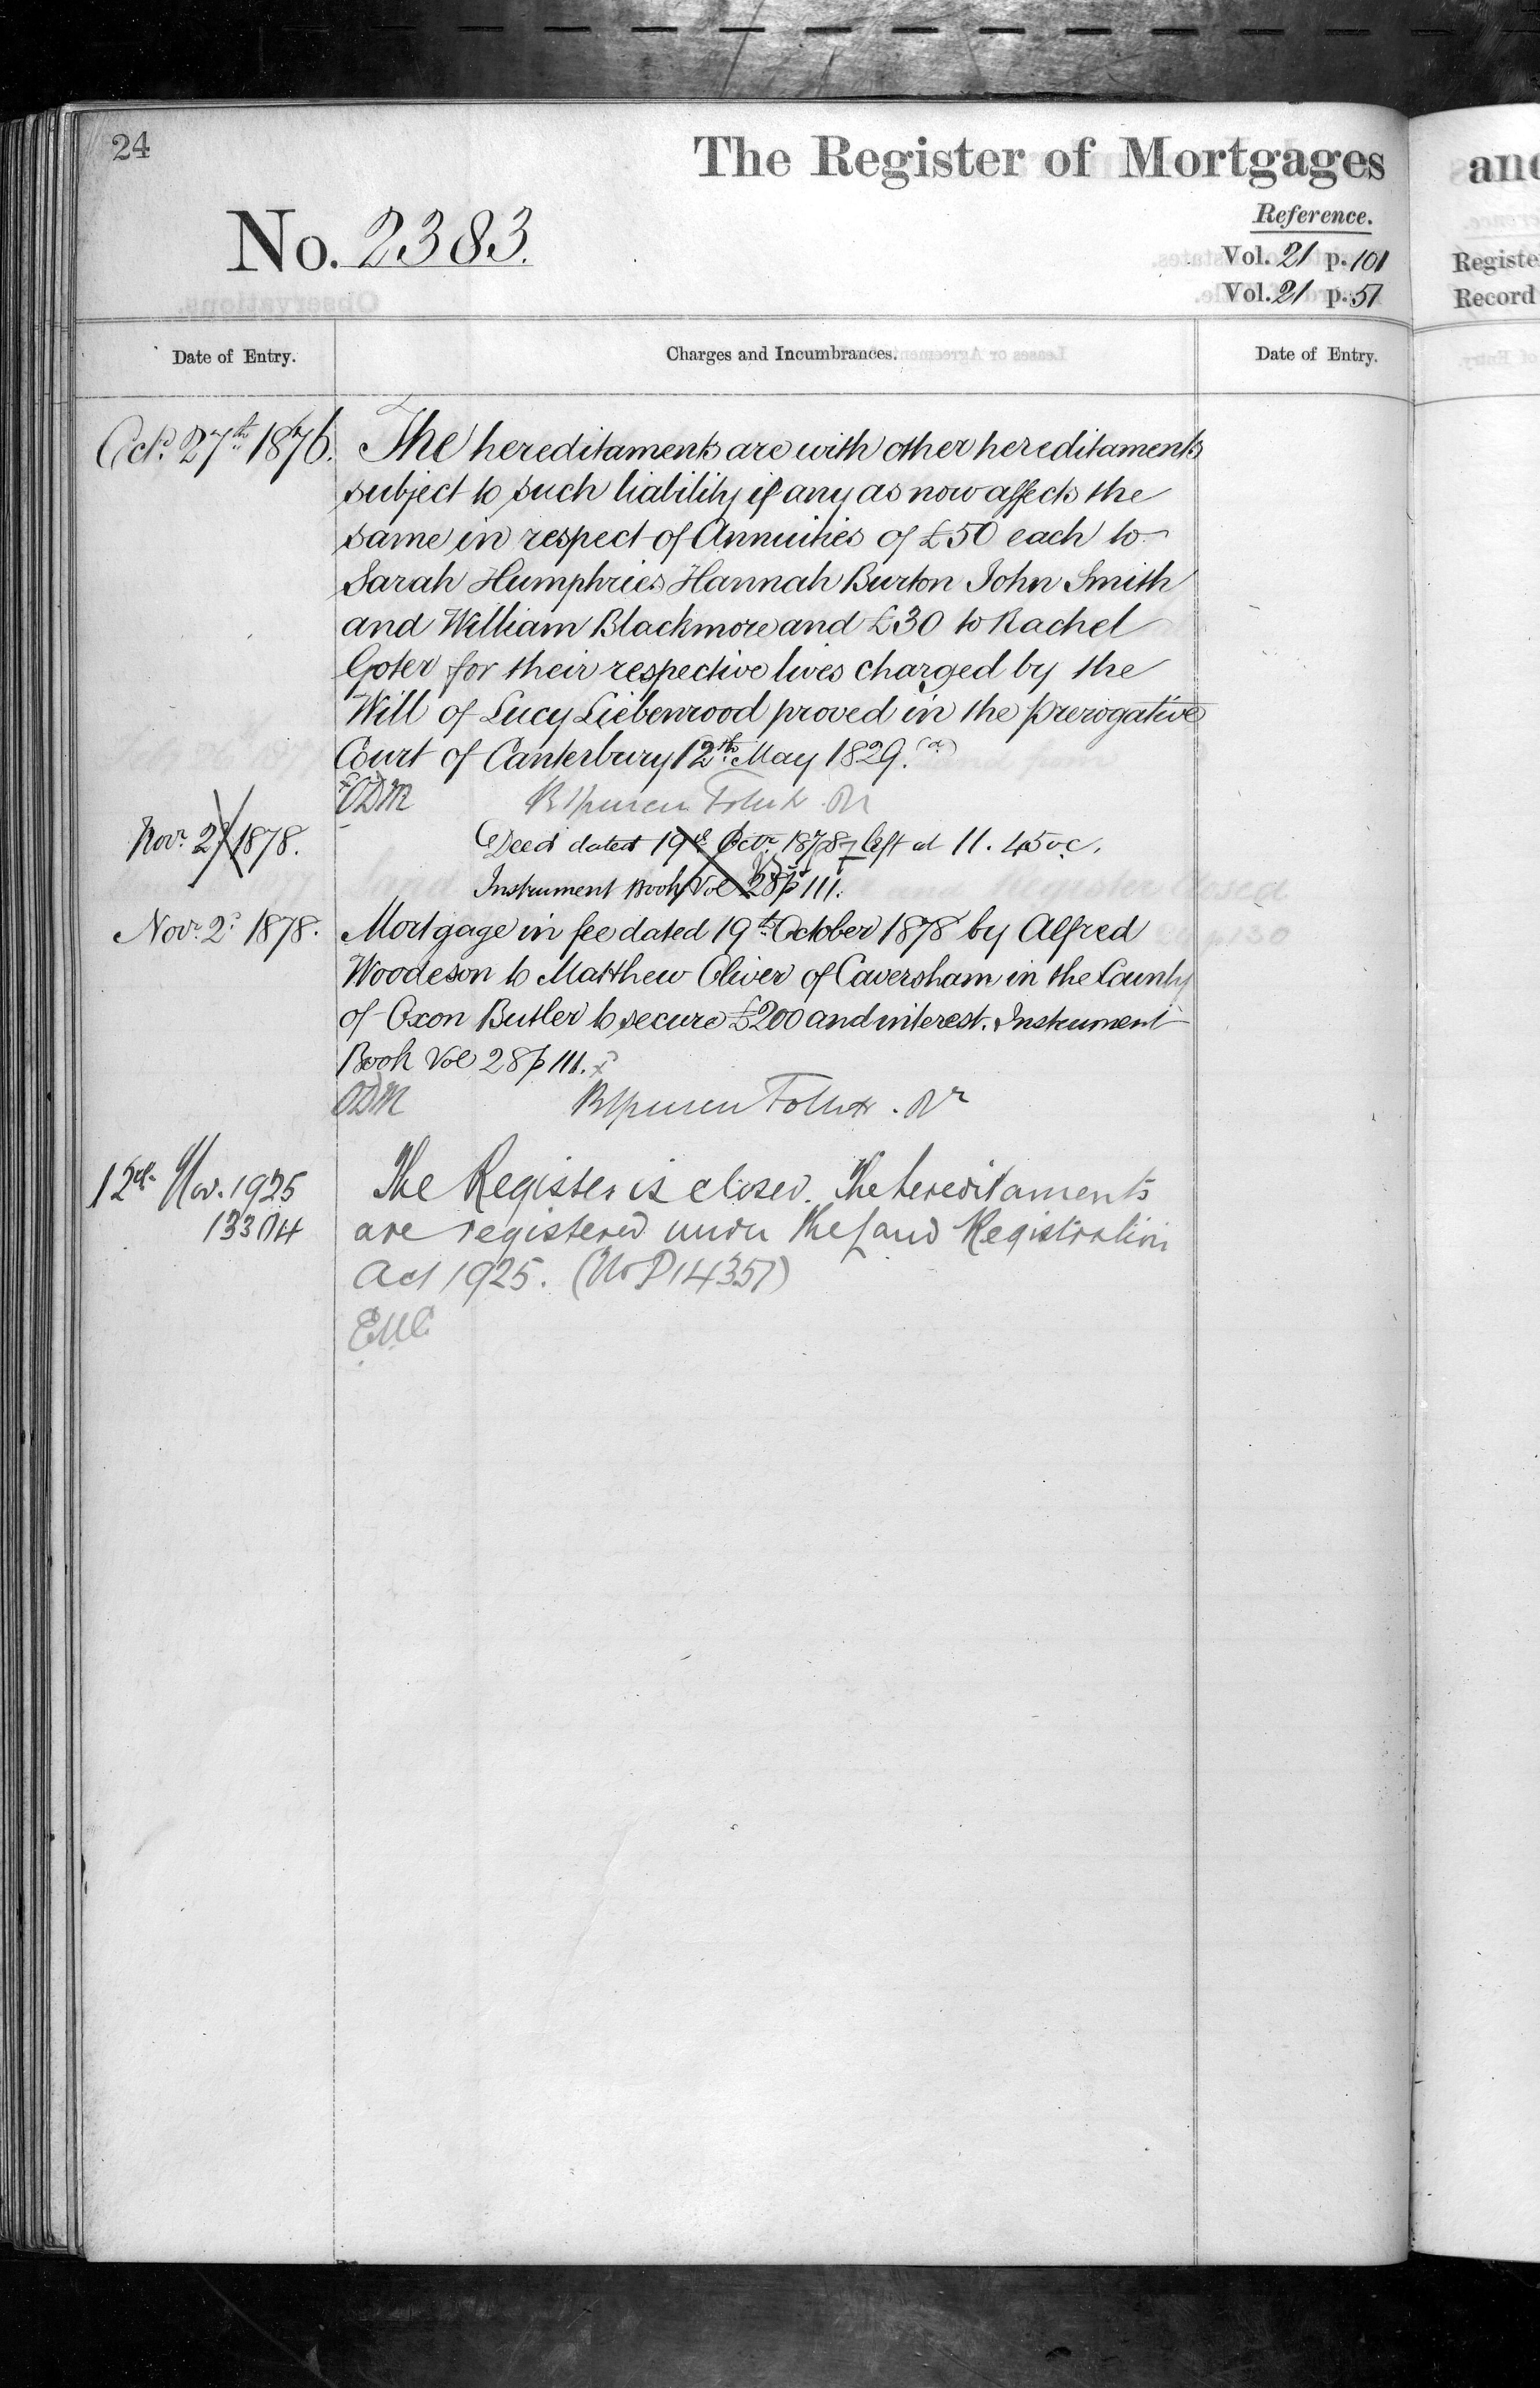 24
The Register of Mortgages
Reference.
No. 2383.
Vol. 21 p. 101
Vol. 21 p. 51
Date of Entry.
Charges and Incumbrances.
Date of Entry.
Octr. 27th 1876.
The hereditaments are with other hereditaments
subject to such liability if any as now affects the
same in respect of Annuities of £50 each to
Sarah Humphries Hannah Burton John Smith
and William Blackmore and £30 to Rachel
Goter for their respective lives charged by the
Will of Lucy Liebenrood proved in the prerogative
Court of Canterbury 12th May 1829.
Novr 2d 1878.
Deed dated 19th Octr. 1878 left at 11.45 o'c.
Instrument Book Vol 28 p 111.
Novr. 2d 1878.
Mortgage in fee dated 19th October 1878 by Alfred
Woodeson to Matthew Oliver of Caversham in the County
of Oxon Butler to secure £200 and interest. Instrument
Book Vol 28 p 111.
ODM
12th Nov. 1925
The Register is closed. The hereditaments
are registered under the Land Registration
Act 1925. (No P14357)
and
Registe
Record